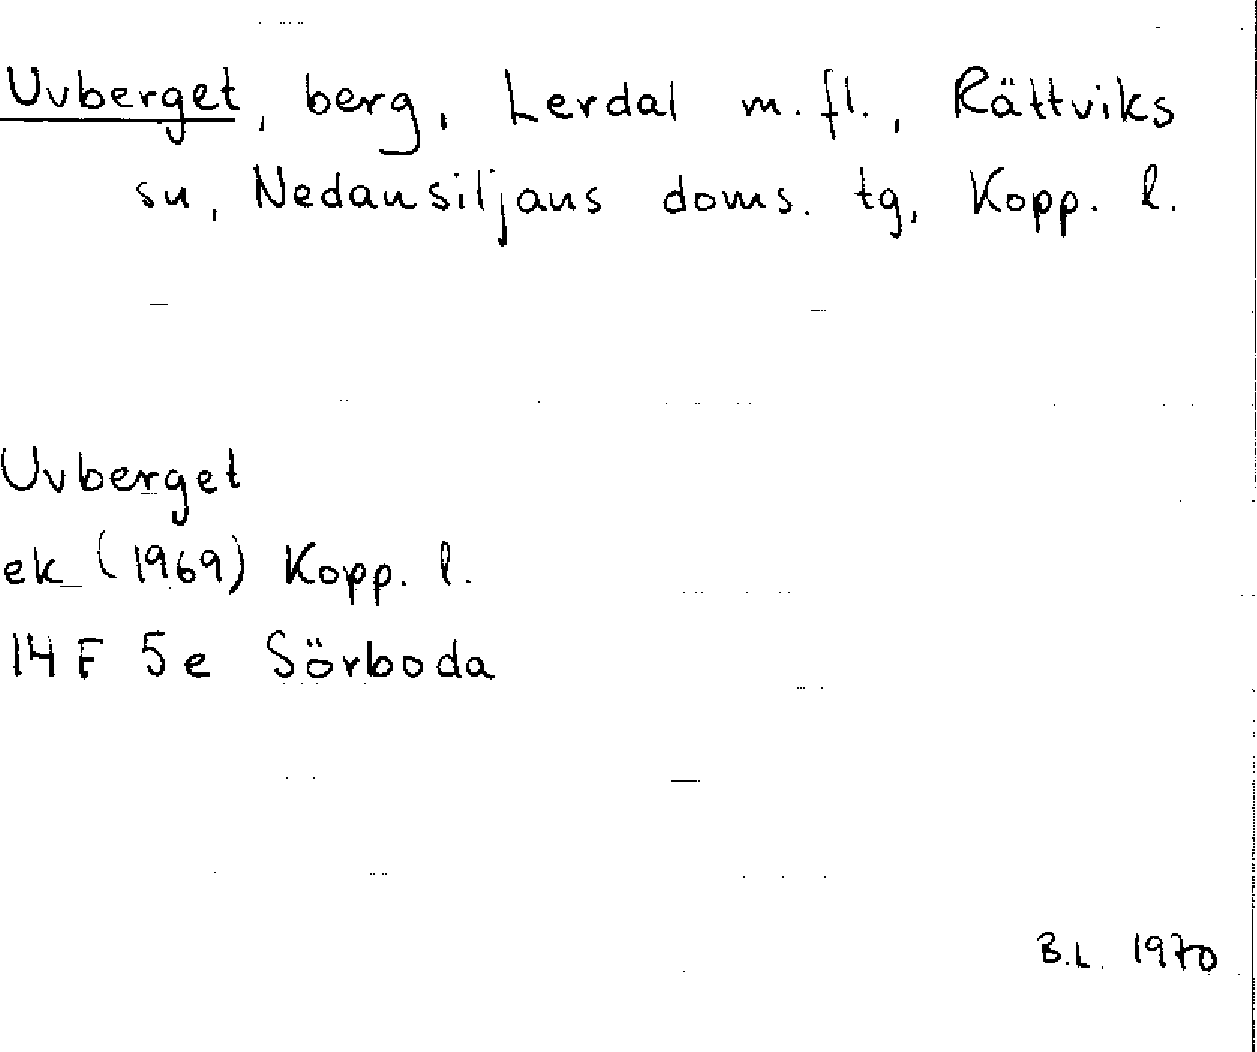 Uvberget, berg, Lerdal m.fl., Rättviks
sn, Nedansiljans doms. tg, Kopp. l.
Uvberget
ek (1969) Kopp. l.
14 F 5e Sörboda
B.L. 1970